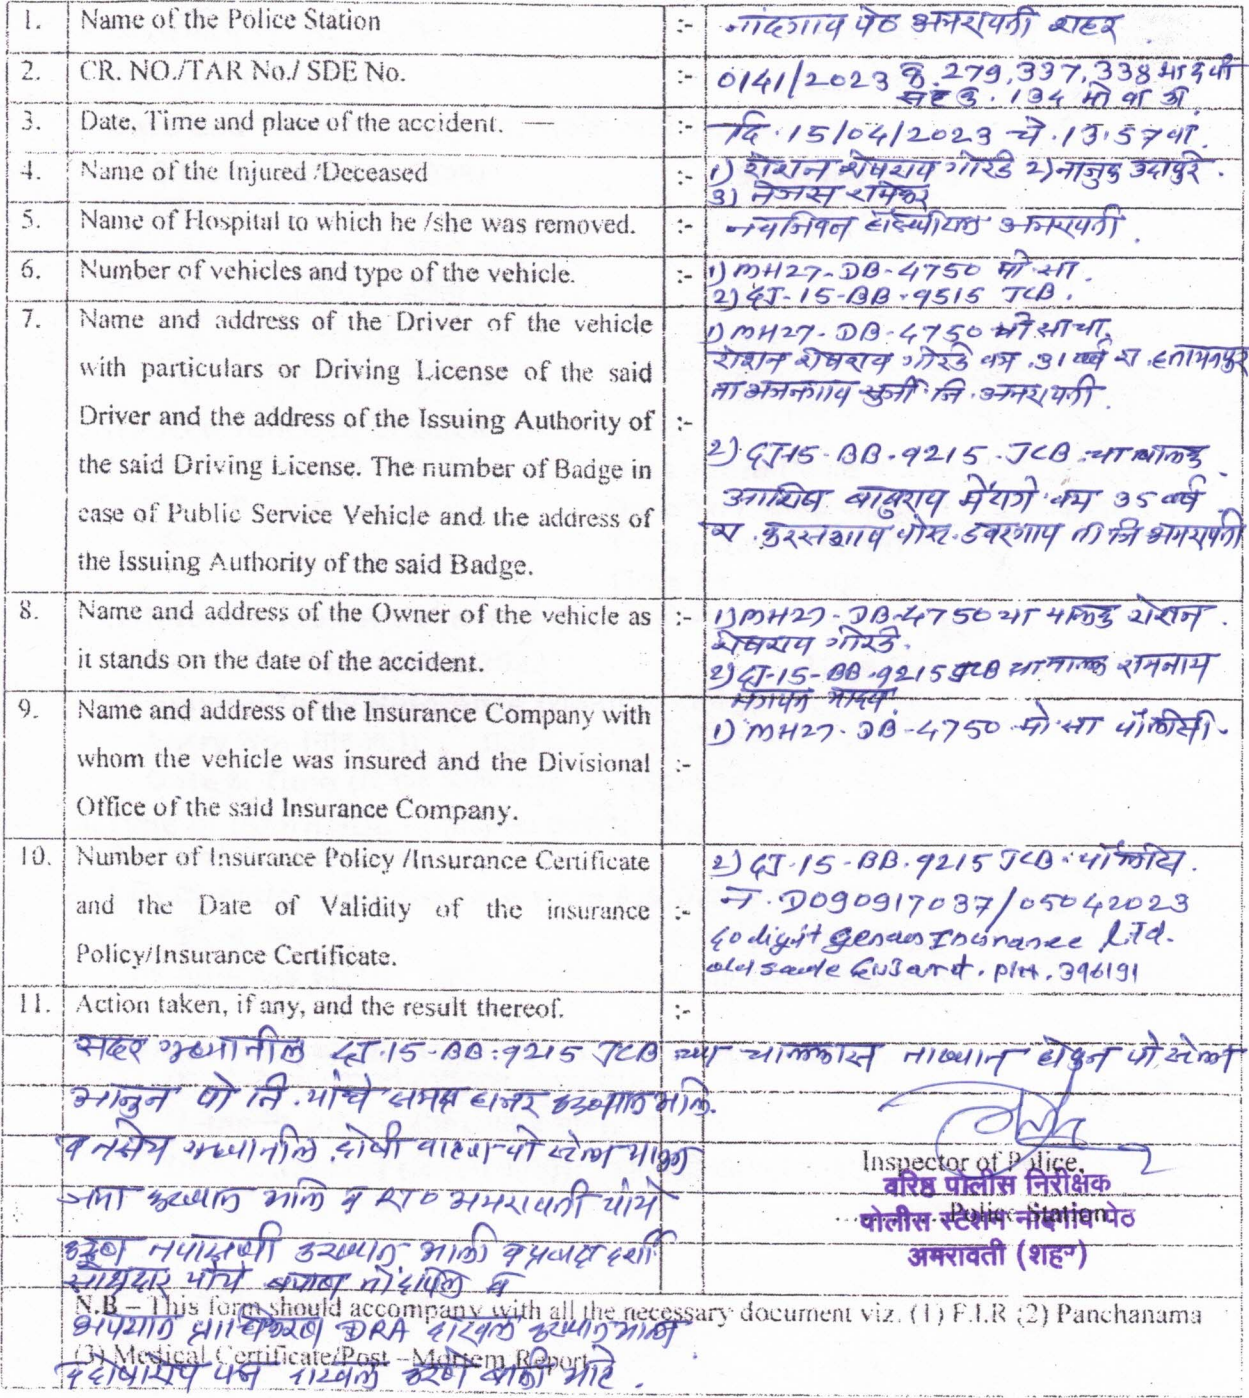 1. Name of the Police Station :- नांदगाव पेठ अमरावती शहर
2. CR. NO./TAR No./ SDE No. :- 0141/2023 क. 279,337,338 भादवी
सह क. 134 मो वा अ
3. Date, Time and place of the accident. — :- दि. 15/04/2023 चे .13.57 वा.
4. Name of the Injured /Deceased :- 1) रोशन शेषराव गोरडे 2) नाजुक उदापुरे.
3) तेजस रामेकर
5. Name of Hospital to which he /she was removed. :- नवजिवन हॉस्पीटल अमरावती.
6. Number of vehicles and type of the vehicle. :- 1) MH27-DB-4750 मो सा.
2) GJ-15-BB-9515 JCB.
7. Name and address of the Driver of the vehicle
with particulars or Driving License of the said
Driver and the address of the Issuing Authority of :-
the said Driving License. The number of Badge in
case of Public Service Vehicle and the address of
the Issuing Authority of the said Badge.
1) MH27-DB-4750 मो सा चा.
रोशन शेषराव गोरडे वय 31 वर्ष रा.
ता अंजनगाव सुर्जी जि. अमरावती.
2) GJ-15-BB-9215-JCB चा चालक
आशिष बाबुराव मेंढागे वय 35 वर्ष
रा. पोस्ट. डवरगाव ता जि अमरावती
8. Name and address of the Owner of the vehicle as :-
it stands on the date of the accident.
1) MH27-DB-4750 चा मालक रोशन.
शेषराव गोरडे.
2) GJ-15-BB-9215 JCB चा मालक रामनाथ
यादव.
9. Name and address of the Insurance Company with
whom the vehicle was insured and the Divisional :-
Office of the said Insurance Company.
1) MH27-DB-4750 मो सा पॉलीसी.
10. Number of Insurance Policy /Insurance Certificate
and the Date of Validity of the insurance :-
Policy/Insurance Certificate.
2) GJ-15-BB-9215 JCB पॉलीसी.
नं. D090917037/05042023
Go digit Insurance Ltd.
396191
11. Action taken, if any, and the result thereof. :-
सदर गुन्ह्यातील GJ-15-BB-9215 JCB च्या चालकास ताब्यात घेवुन पो.स्टेला
आनुन पो नि. यांचे समक्ष हजर करण्यात आले.
व तसेच गुन्ह्यातील दोषी वाहन पो स्टेला
जमा करण्यात आले व RTO अमरावती यांचे
तपासणी करण्यात आली व
साक्षदार यांचे बयाण नोंदविले व
अपघात DRA दाखल करण्यात आला
व दोषारोप पत्र दाखल करणे बाकी आहे.
Inspector of Police,
वरिष्ठ पोलीस निरीक्षक
..........Police Station
पोलीस स्टेशन नांदगांव पेठ
अमरावती (शहर)
N.B – This form should accompany with all the necessary document viz. (1) F.I.R (2) Panchanama
(3) Medical Certificate/Post –Mortem Report